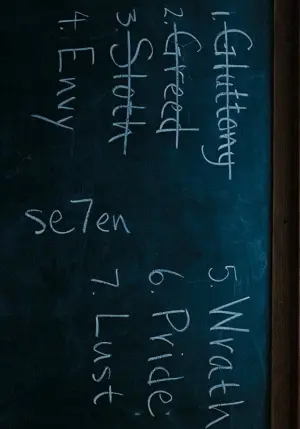 1. Gluttony
2. Greed
3. Sloth
4. Envy
se7en
5. Wrath
6. Pride
7. Lust